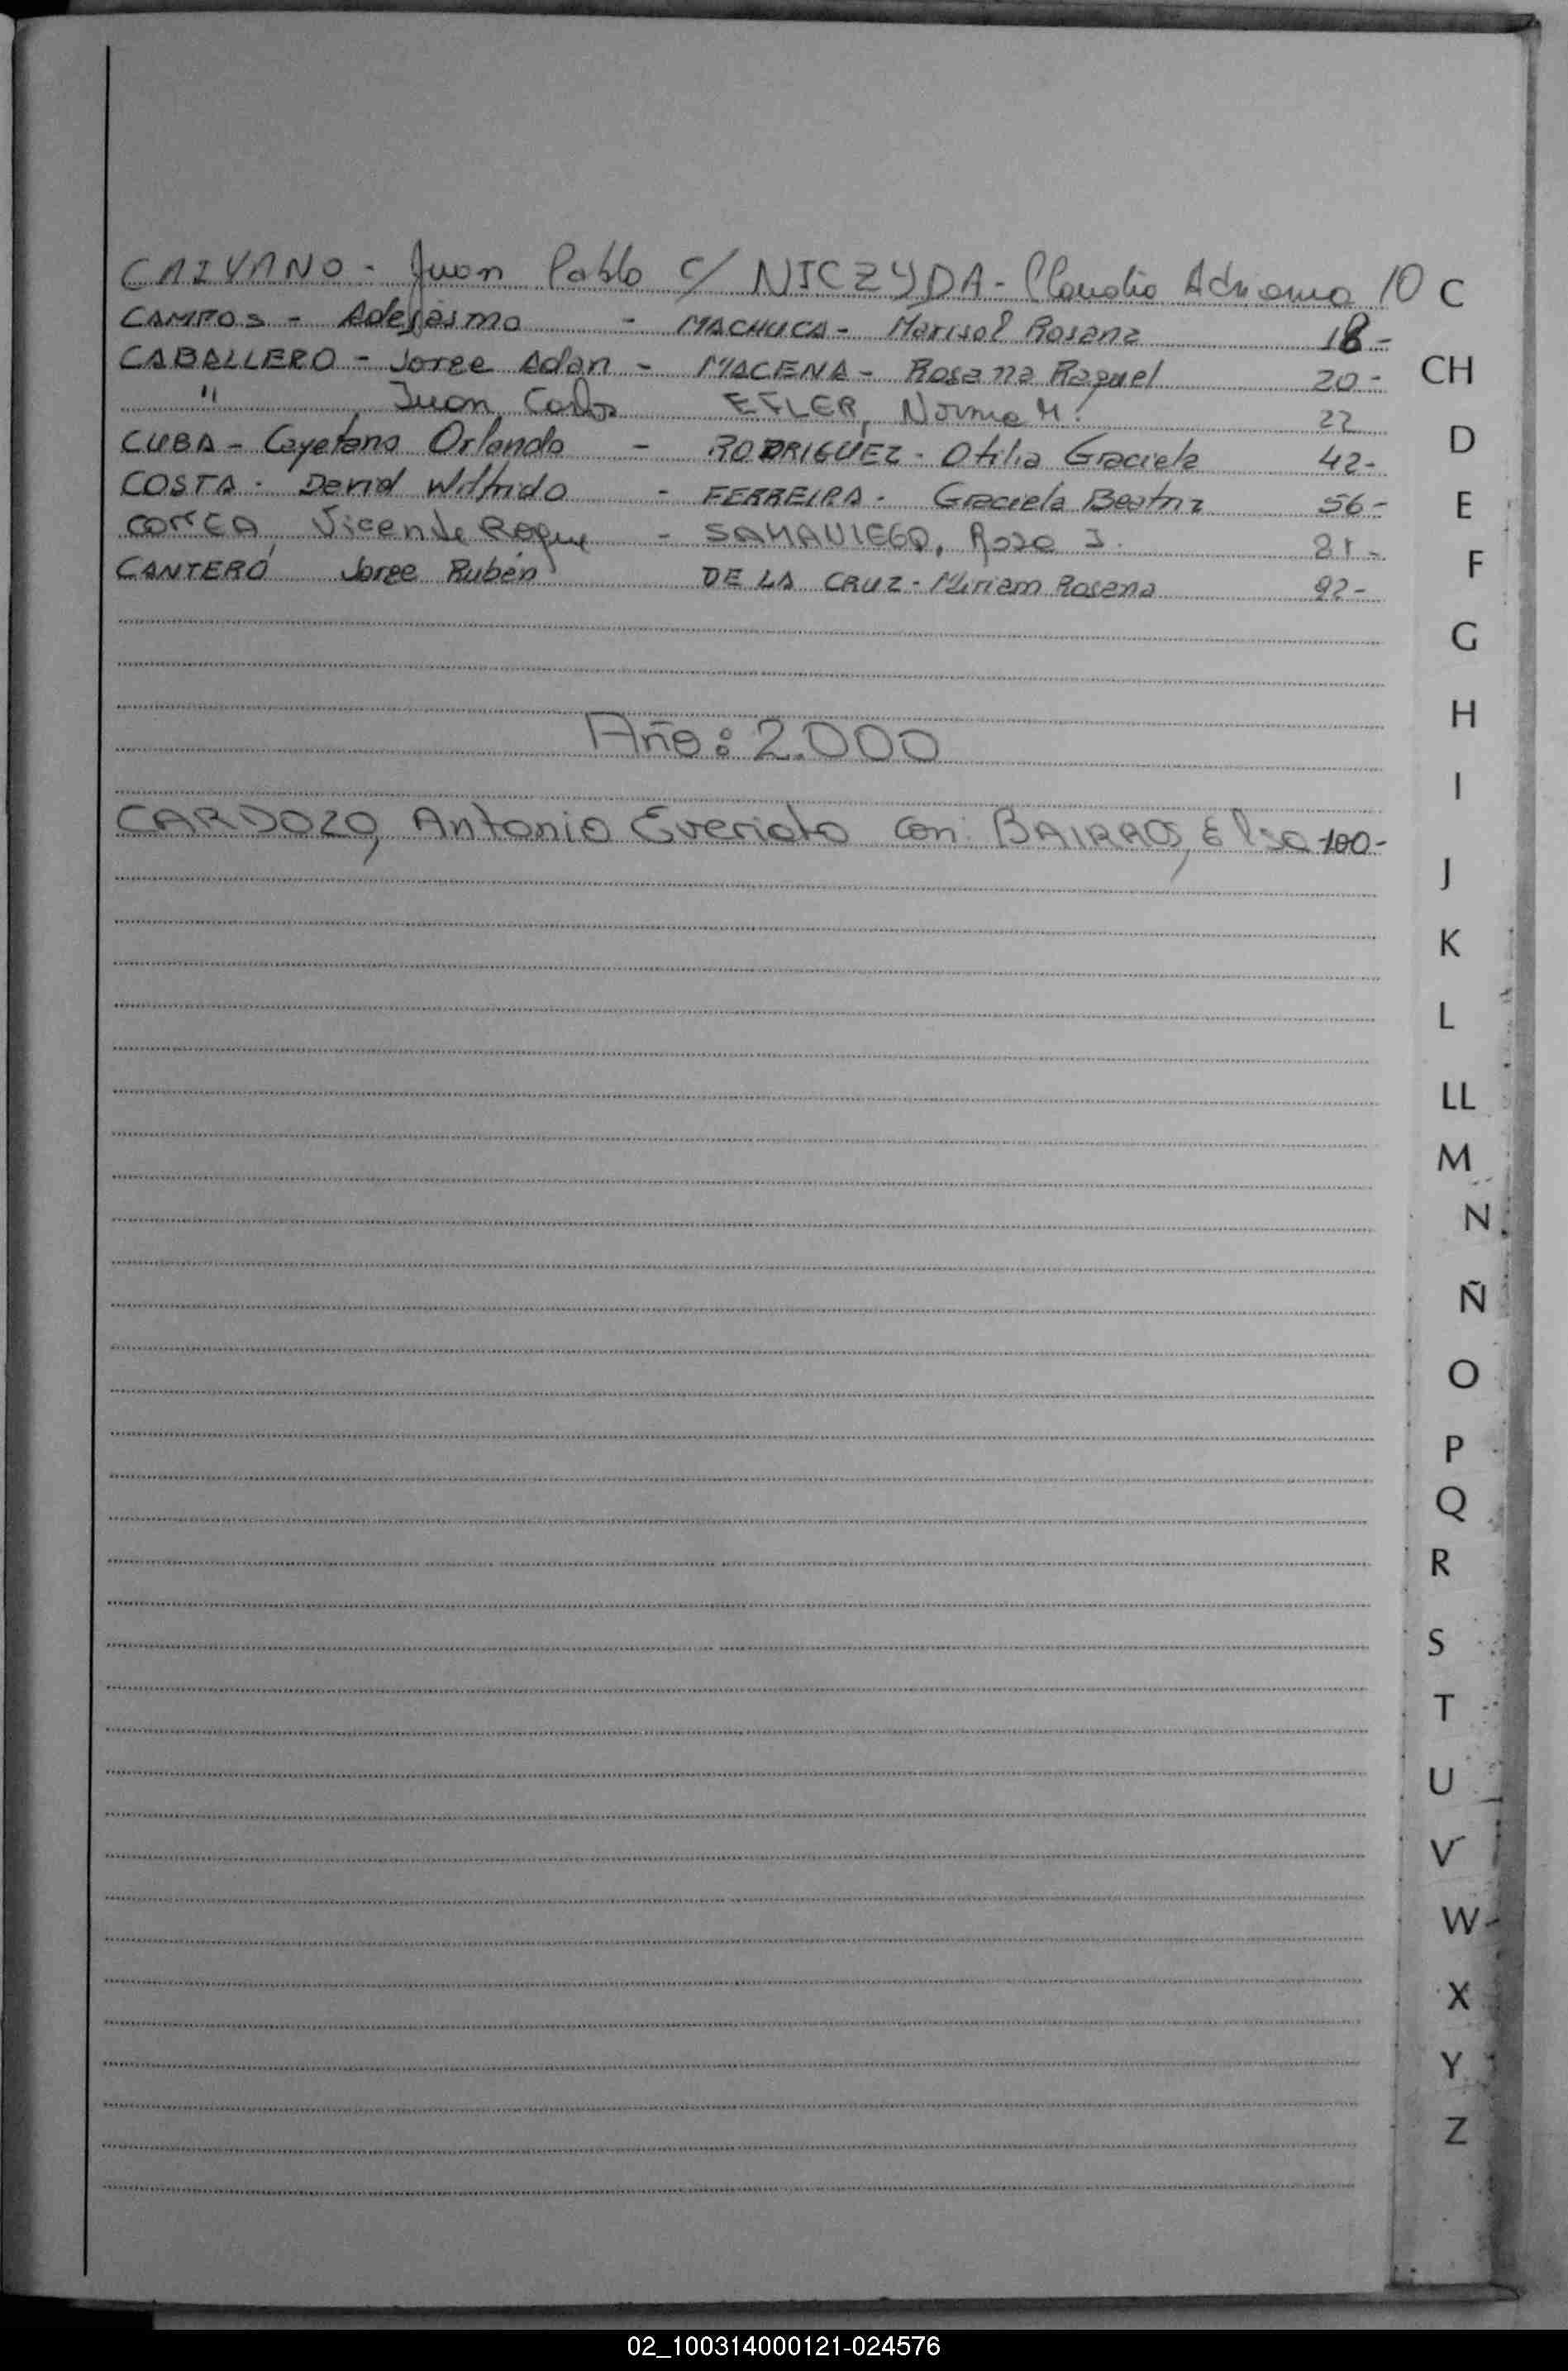 CAIVANO - Juan Pablo c/ NICZYDA - Claudia Adriana 10
CAMPOS - Adejesmo - MACHUCA - Marisol Rosana 18 -
CABALLERO - Jorge Adan - MACENA - Rosana Raquel 20 -
" , Juan Carlos EFLER, Norma M. 22
CUBA - Cayetano Orlando - RODRIGUEZ - Otilia Graciela 42 -
COSTA - David Wilfrido - FERREIRA - Graciela Beatriz 56 -
CORREA, Vicente Roque - SAMANIEGO, Rosa I. 81 -
CANTERO Jorge Rubén DE LA CRUZ - Miriam Rosana 92 -
Año: 2.000
CARDOZO, Antonio Everisto con: BAIRROS, Elsa 100 -
C
CH
D
E
F
G
H
I
J
K
L
LL
M
N
Ñ
O
P
Q
R
S
T
U
V
W
X
Y
Z
02_100314000121-024576